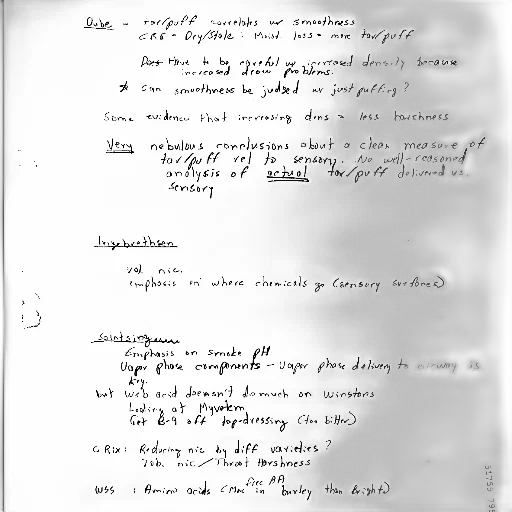 Dube - tar/puff correlates w smoothness
CRG - Dry/Stale : Moist. loss = more tar/puff
Does Have to be careful w increased density because
increased draw problems.
* Can smoothness be judged w just puffing?
Some evidence that increasing dens = less harshness
Very nebulous conclusions about a clear measure of
tar/puff rel to sensory. No well-reasoned
analysis of actual tar/puff delivered vs.
sensory
Ingebrethsen
vol. nic.
emphasis on where chemicals go (sensory surfaces)
Emphasis on smoke pH
Vapor phase components - Vapor phase delivery to is
key.
but acid doesn't do much on Winstons
Looking at
Get B-9 off topdressing (too bitter)
C Rix: Reducing nic by diff varieties?
Tob. nic/Throat Harshness
free AA
WSS : Amino acids (More in burley than Bright)
51759 795